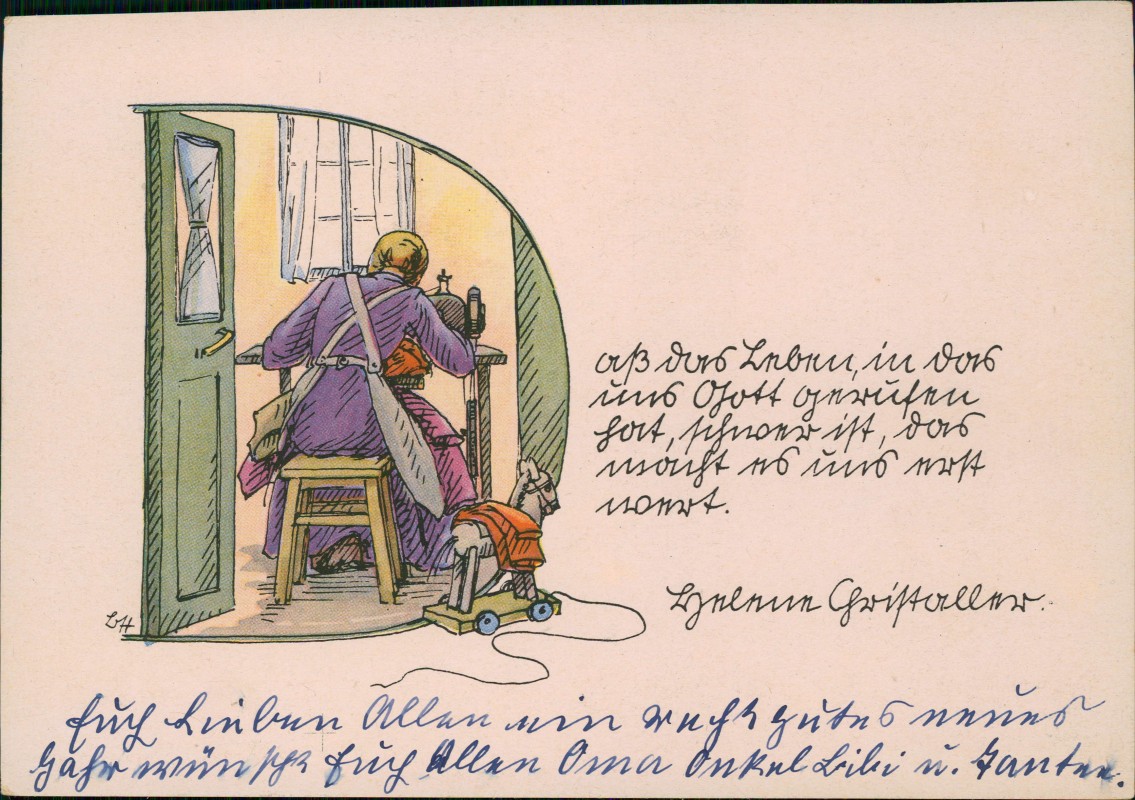 Daß das Leben, in das
uns Gott gerufen
hat, schwer ist, das
macht es uns erst
wert.
Helene Christaller.
LH
Euch Lieben Allen ein recht gutes neues
Jahr wünscht Euch Allen Oma Onkel Bibi u. Tanten.